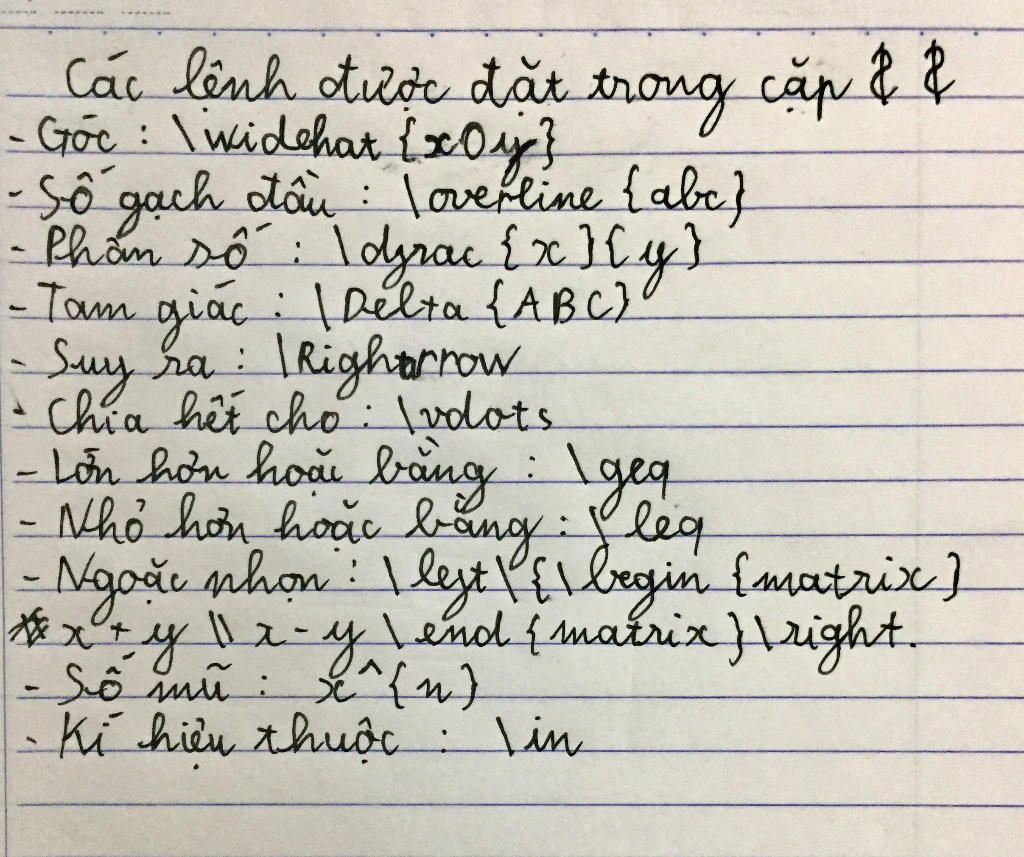 Các lệnh được đặt trong cặp $ $
- Góc : \widehat {xOy}
- Số gạch đầu : \overline {abc}
- Phân số : \dfrac {x}{y}
- Tam giác : \Delta {ABC}
- Suy ra : \Rightarrow
- Chia hết cho : \vdots
- Lớn hơn hoặc bằng : \geq
- Nhỏ hơn hoặc bằng : \leq
- Ngoặc nhọn : \left\{\begin {matrix}
x + y \\ x - y \end {matrix}\right.
- Số mũ : x^{n}
- Kí hiệu thuộc : \in